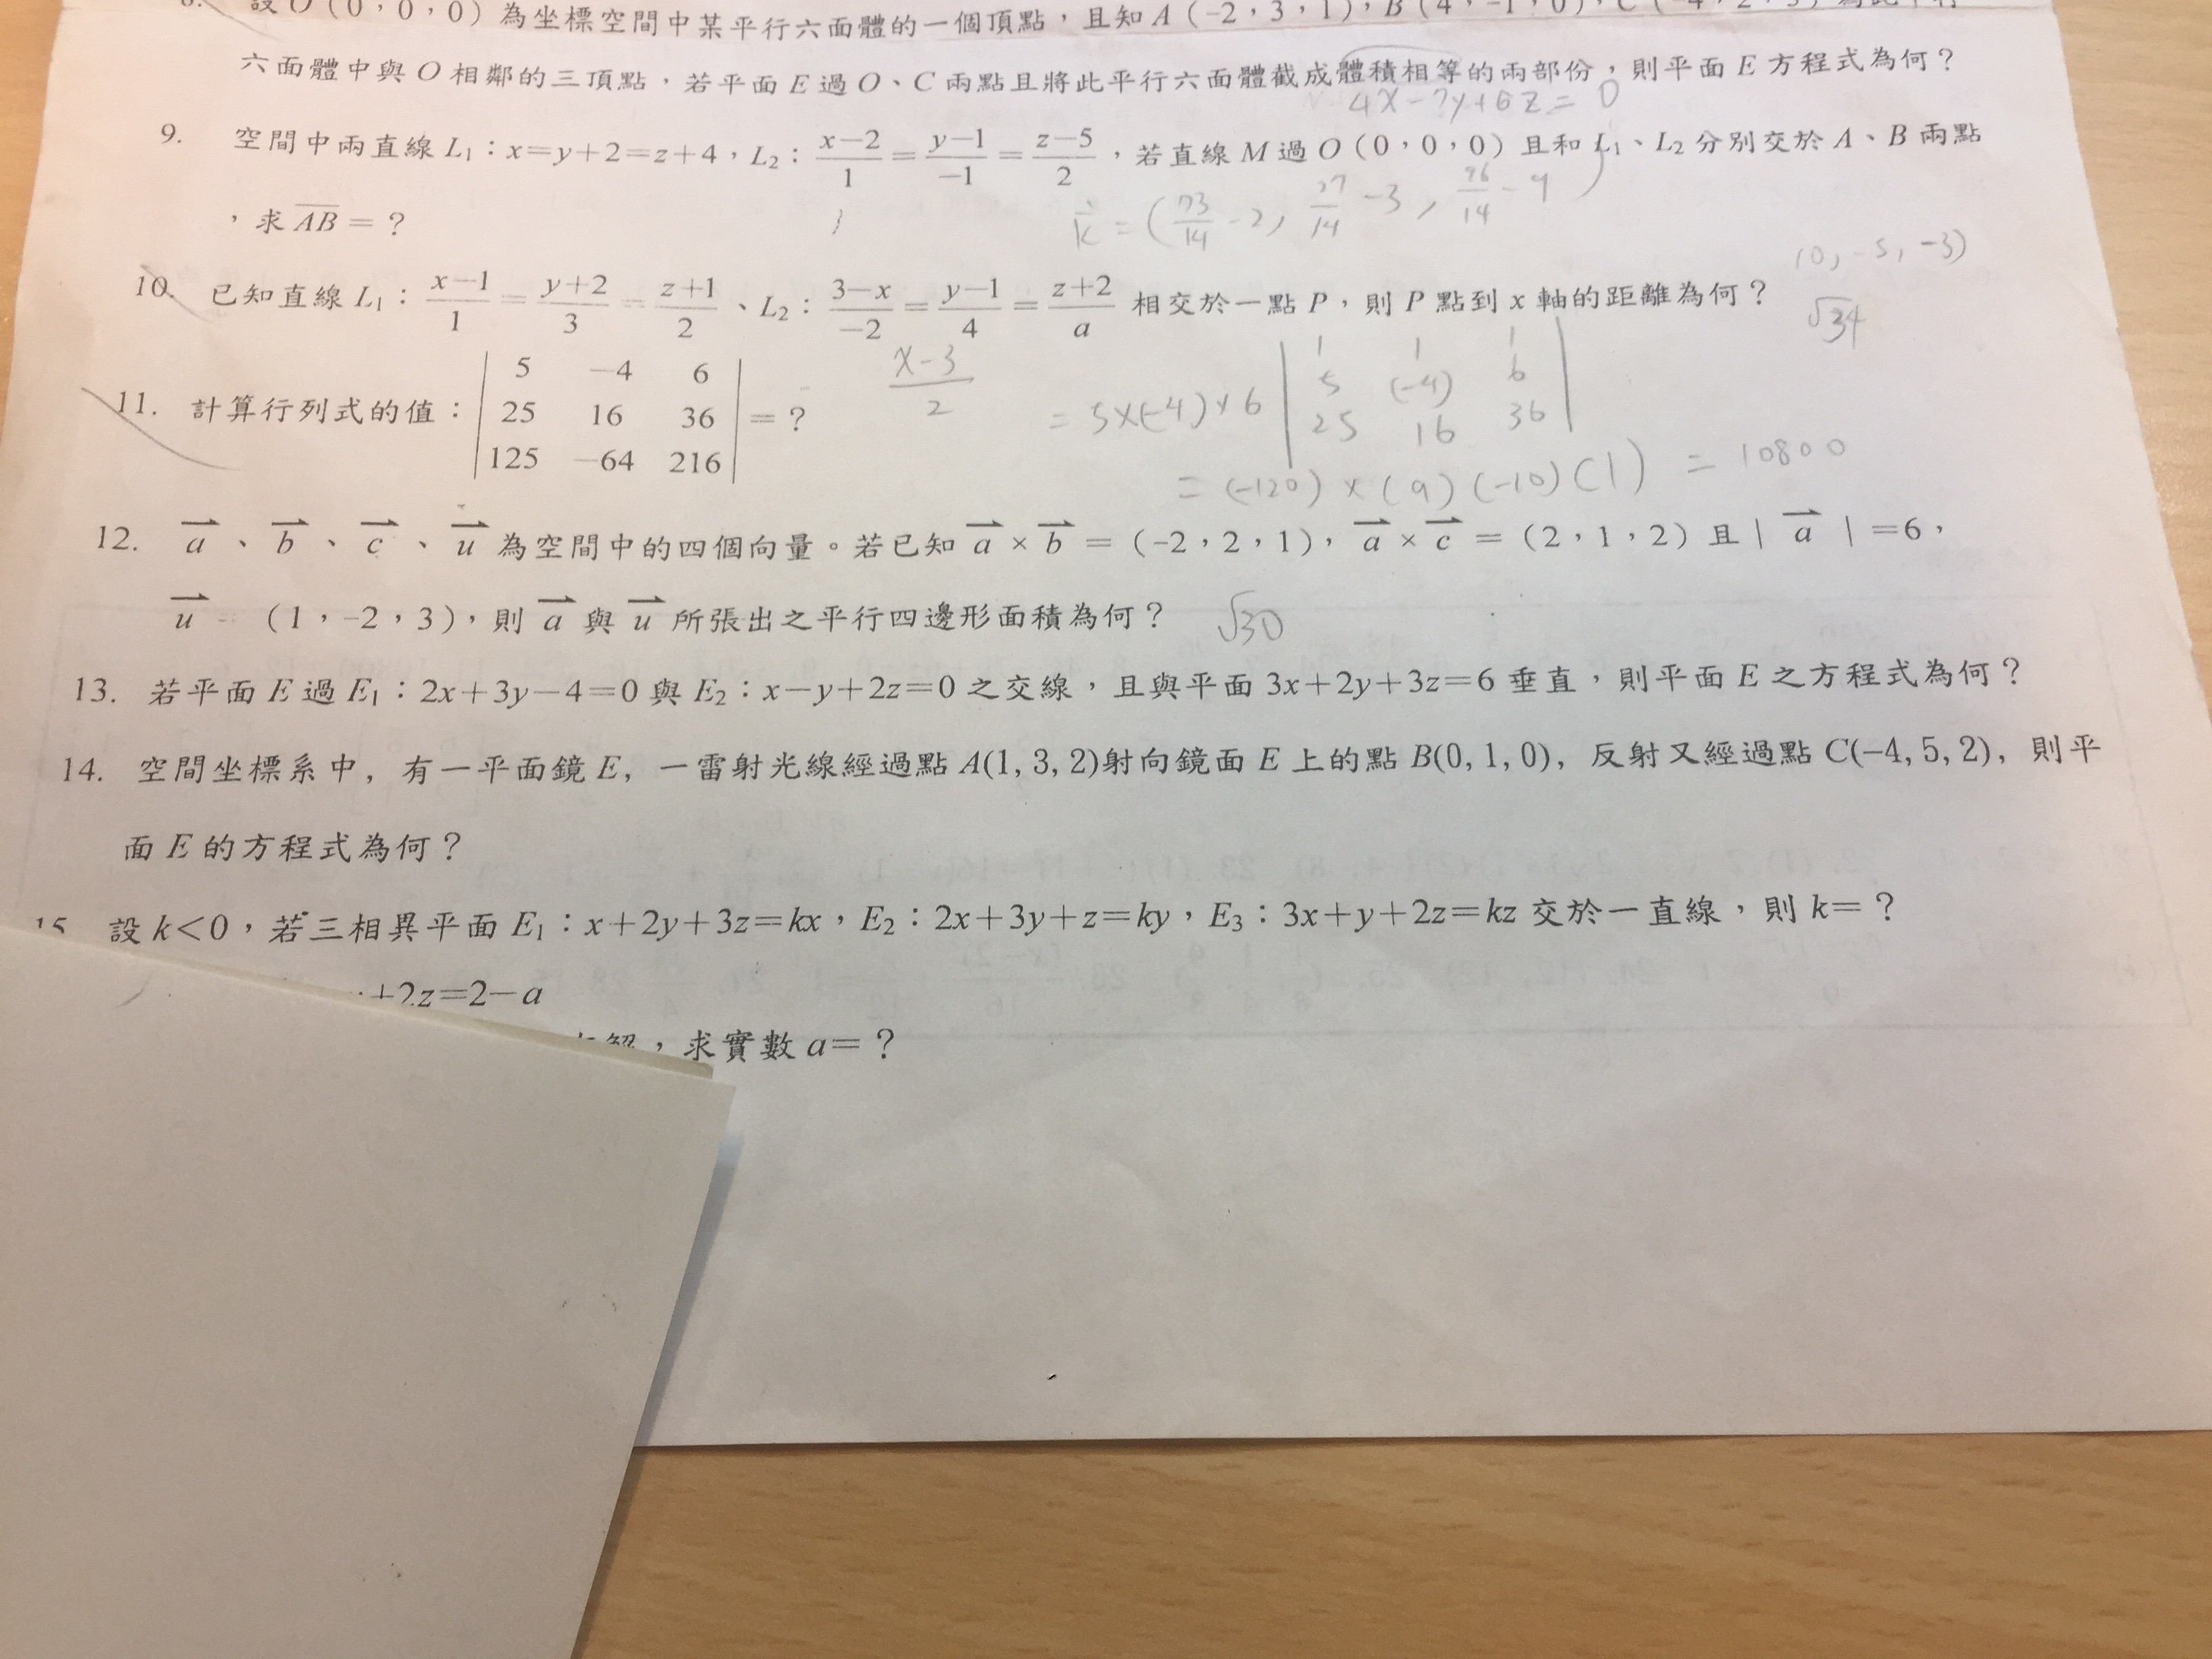 8. 設 O（0，0，0）為坐標空間中某平行六面體的一個頂點，且知 A（-2，3，1），B（4，-1，0），C（-4，2，3）
六面體中與 O 相鄰的三頂點，若平面 E 過 O、C 兩點且將此平行六面體截成體積相等的兩部份，則平面 E 方程式為何？
4x-7y+6z=0
9. 空間中兩直線 L₁：x=y+2=z+4，L₂：(x-2)/1=(y-1)/-1=(z-5)/2，若直線 M 過 O（0，0，0）且和 L₁、L₂ 分別交於 A、B 兩點
，求 AB=？
=(73/14-2, 27/14-3, 76/14-9)
(0,-5,-3)
10. 已知直線 L₁：(x-1)/1=(y+2)/3=(z+1)/2、L₂：(3-x)/-2=(y-1)/4=(z+2)/a 相交於一點 P，則 P 點到 x 軸的距離為何？
√34
(x-3)/2
11. 計算行列式的值：
5 -4 6
25 16 36
125 -64 216
=？
=5×(-4)×6
1 1 1
5 (-4) 6
25 16 36
=(-120)×(9)(-10)(1) =10800
12. a、b、c、u 為空間中的四個向量。若已知 a×b=（-2，2，1），a×c=（2，1，2）且|a|=6，
u=（1，-2，3），則 a 與 u 所張出之平行四邊形面積為何？ √30
13. 若平面 E 過 E₁：2x+3y-4=0 與 E₂：x-y+2z=0 之交線，且與平面 3x+2y+3z=6 垂直，則平面 E 之方程式為何？
14. 空間坐標系中，有一平面鏡 E，一雷射光線經過點 A(1, 3, 2)射向鏡面 E 上的點 B(0, 1, 0)，反射又經過點 C(-4, 5, 2)，則平
面 E 的方程式為何？
15 設 k<0，若三相異平面 E₁：x+2y+3z=kx，E₂：2x+3y+z=ky，E₃：3x+y+2z=kz 交於一直線，則 k=？
+2z=2-a
解，求實數 a=？